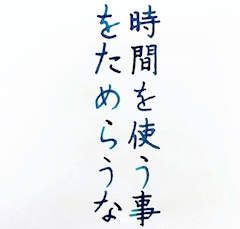 時間を使う事
をためらうな